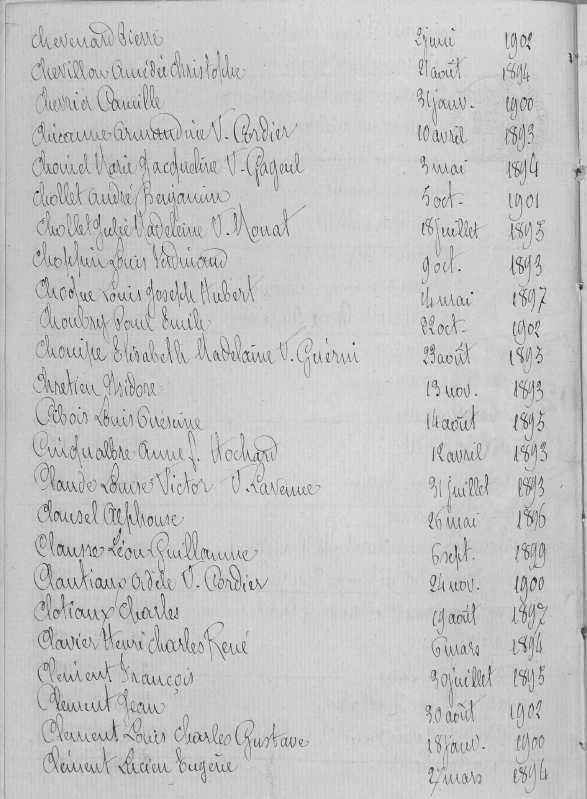 Chevenard Pierre 2 juin 1902
Chevillon Amédée Christophe 21 août 1894
Camille 31 janv. 1900
Armandine V. Cordier 10 avril 1893
Marie Jacqueline V. 3 mai 1894
Chollet André Benjamin 5 oct. 1901
Chollet Julie Madeleine V. Monat 18 juillet 1895
Choppin Louis Ferdinand 9 oct. 1893
Louis Joseph Hubert 14 mai 1897
Choubry Paul Emile 22 oct. 1902
Elisabeth Madelaine V. Guérin 29 août 1893
Chretien Isidore 13 nov. 1893
Louis 14 août 1895
Cinqualbre Anne f. Hochard 12 avril 1893
Claude Louise Victor V. Lavenue 31 juillet 1893
Clausel Alphonse 26 mai 1896
Clausse Léon Guillaume 6 sept. 1899
Clautiaux Adèle V. Cordier 24 nov. 1900
Clotiaux Charles 19 août 1897
Clavier Henri Charles René 6 mars 1894
Clement François 30 juillet 1895
Clement Jean 30 août 1902
Clement Louis Charles Gustave 18 janv. 1900
Clément Lucien Eugène 27 mars 1894